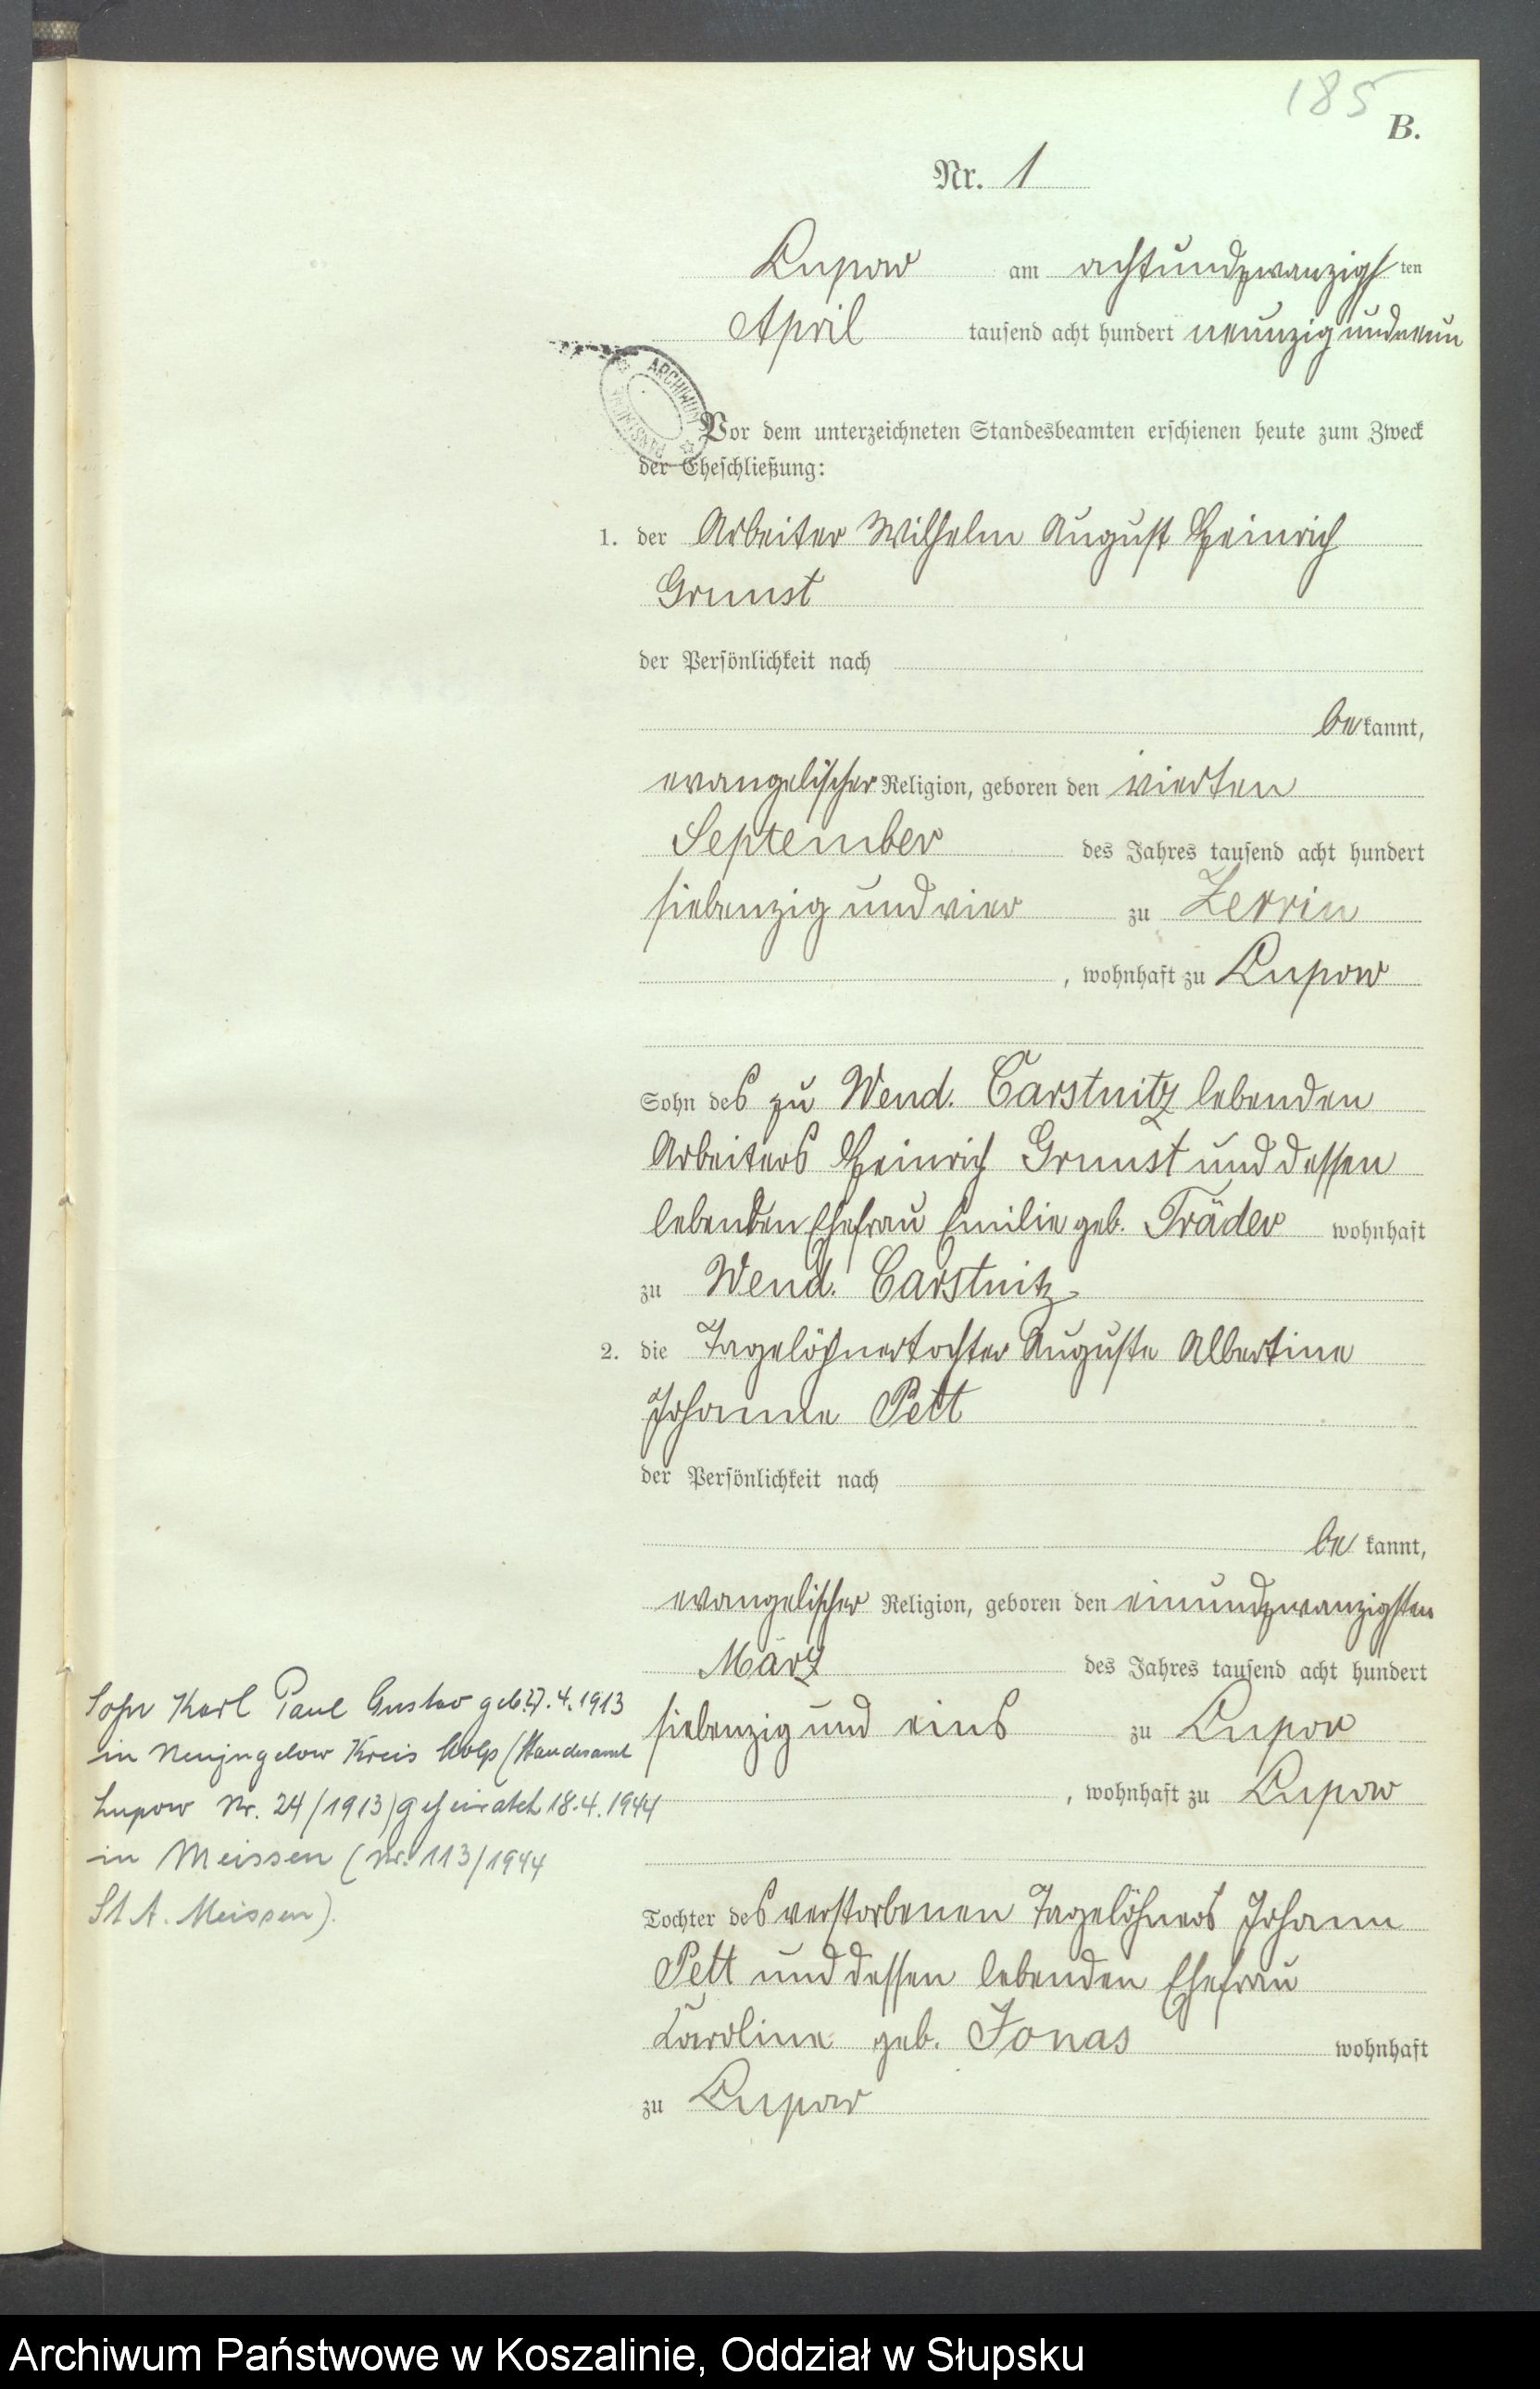 185
B.
Nr. 1
Lupow am achtundzwanzigsten
April tausend acht hundert neunzig und neun
ARCHIWUM
Vor dem unterzeichneten Standesbeamten erschienen heute zum Zweck
der Eheschließung:
1. der Arbeiter Wilhelm August Heinrich
Grunst
der Persönlichkeit nach
bekannt,
evangelischer Religion, geboren den vierten
September des Jahres tausend acht hundert
siebenzig und vier zu Zerrin
, wohnhaft zu Lupow
Sohn des zu Wend. Carstnitz lebenden
Arbeiters Heinrich Grunst und dessen
lebenden Ehefrau Emilie geb. Träder wohnhaft
zu Wend. Carstnitz
2. die Tagelöhnertochter Auguste Albertine
Johanne Pett
der Persönlichkeit nach
bekannt,
evangelischer Religion, geboren den einundzwanzigsten
März des Jahres tausend acht hundert
siebenzig und eins zu Lupow
, wohnhaft zu Lupow
Tochter des verstorbenen Tagelöhners Johann
Pett und dessen lebenden Ehefrau
Karoline geb. Jonas wohnhaft
zu Lupow
Sohn Karl Paul Gustav geb. 27.4.1913
in Neujugelow Kreis Stolp (Standesamt
Lupow Nr. 24/1913) geheiratet 18.4.1944
in Meissen (Nr. 113/1944
St A. Meissen).
Archiwum Państwowe w Koszalinie, Oddział w Słupsku